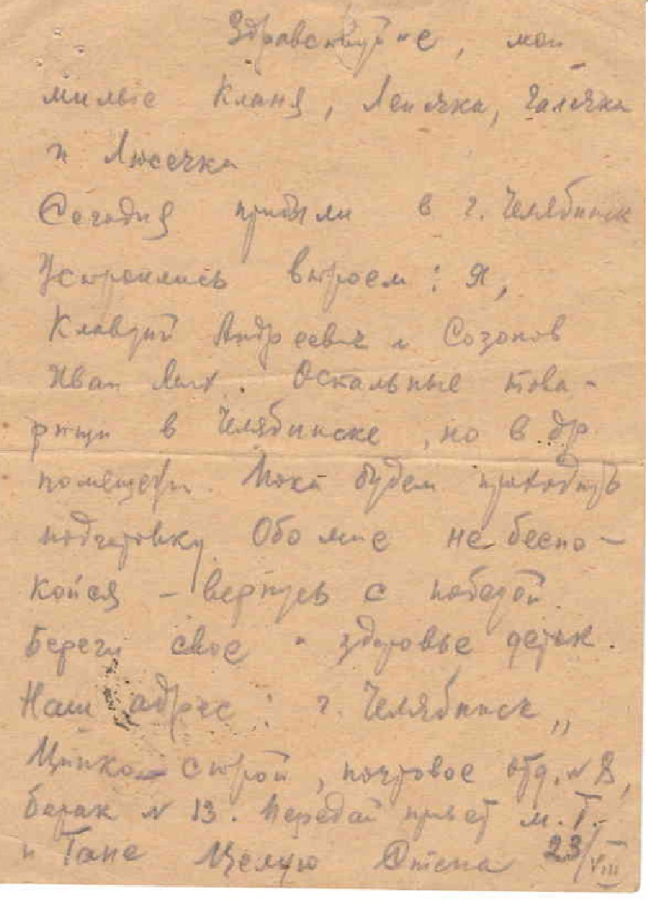 Здравствуйте, мои
милые Клавя, Леночка, Галечка
и Люсечка
Сегодня прибыли в г. Челябинск
Устроились втроем: Я,
Клавдий Андреевич и Созонов
Иван Мих. Остальные това-
рищи в Челябинске, но в др.
помещени. Пока будем проходить
подготовку. Обо мне не беспо-
койся - вернусь с победой.
Береги свое и здоровье деток.
Наш адрес: г. Челябинск,,
Цинко-строй, почтовое отд. N 8,
барак N 13. Передай привет м. Т.
и Тане Целую 23/VIII